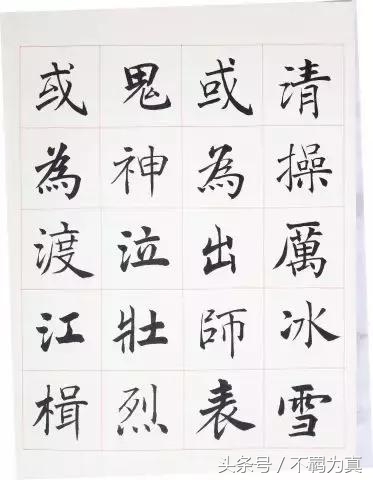 清操厲冰雪
或為出師表
鬼神泣壯烈
或為渡江楫
头条号 / 不羁为真